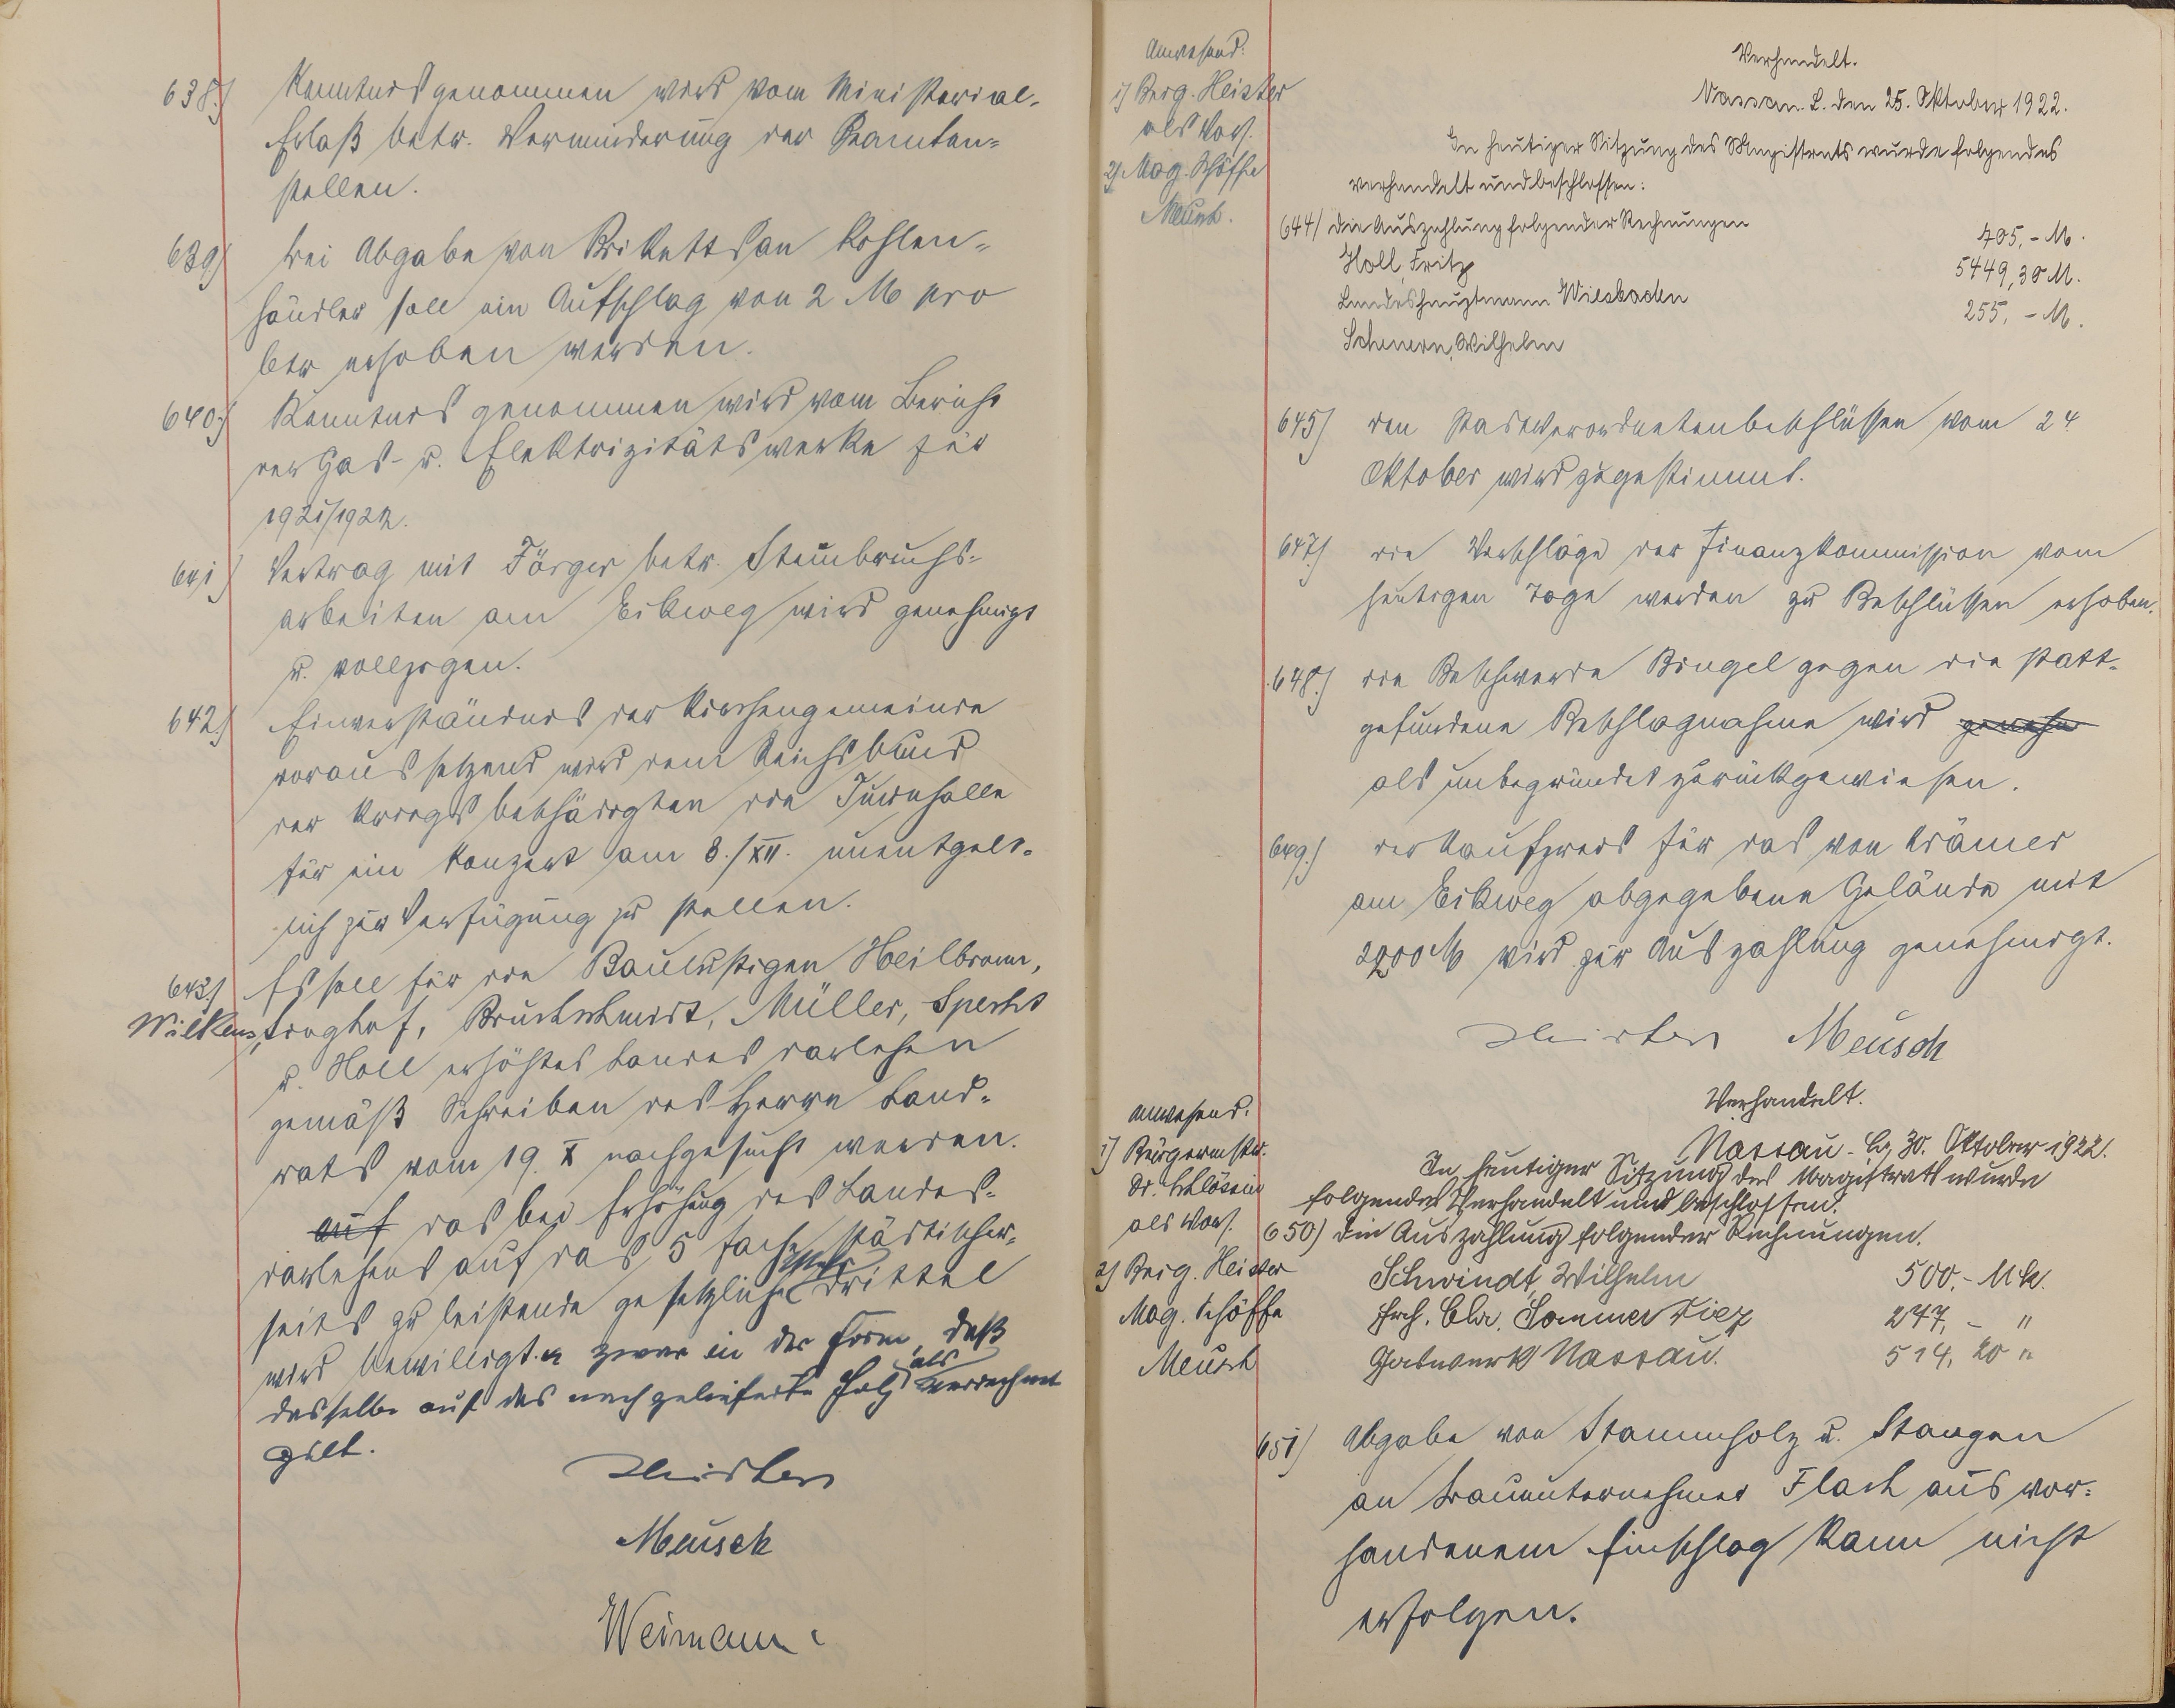 638.) Kenntnis genommen wird vom Ministerial-
Erlaß betr. Verminderung der Beamten=
stellen.
639) bei Abgabe von Briketts an Kohlen-
händler soll ein Aufschlag von 2 M pro
Ctr erhoben werden.
640.) Kenntnis genommen wird vom Bericht
der Gas- u. Elektrizitätswerke für
1921/1922.
641) Vertrag mit Förger betr. Steinbruchs-
arbeiten am Eikweg wird genehmigt
u. vollzogen.
642.) Einverständnis der Kirchengemeinde
voraussetzend wird dem Reichsbund
der Kriegsbeschädigten die Turnhalle
für ein Konzert am 8./XII. unentgelt-
lich zur Verfügung zu stellen.
643.) Es soll für die Baulustigen Heilbronn,
Wilkens, Bruchschmidt, Müller, Specht
u. Holl erhöhtes Landesdarlehen
gemäß Schreiben des Herrn Land-
rats vom 19. X nachgesucht werden.
auf das bei Erhöhung des Landes-
darlehens auf das 5 fache städtischer-
seits zu leistende gesetzliche Drittel
wird bewilligt. u zwar in der Form, daß
dasselbe auf das nach gelieferte Holz als verrechnet
gilt.
Heister
Meusch
Weimann.
Anwesend:
1) Beig. Heister
als Vors.
2) Mag. Schöffe
Meusch.
Verhandelt.
Nassau. L. den 25. Oktober 1922.
In heutiger Sitzung des Magistrats wurde folgendes
verhandelt und beschlossen:
644) Die Auszahlung folgender Rechnungen
Holl, Fritz 705,- M.
Landeshauptmann Wiesbaden 5449,30 M.
Scheuern, Wilhelm 255,- M.
645) den Stadtverordnetenbeschlüssen vom 24.
Oktober wird zugestimmt.
647.) die Vorschläge der Finanzkommission vom
heutigen Tage werden zu Beschlüssen erhoben.
648.) die Beschwerde Bingel gegen die statt-
gefundene Beschlagnahme wird geneh
als unbegründet zurückgewiesen.
649.) der Kaufpreis für das von Krämer
am Eikweg abgegebene Gelände mit
M wird zur Auszahlung genehmigt.
Heister Meusch
Anwesend:
1) Bürgermstr.
Dr. Schlösin
als Vors.
2) Beig. Heister
Mag. Schöffe
Meusch
Verhandelt.
Nassau-L, 30. Oktober 1922.
In heutiger Sitzung des Magistrats wurde
folgendes Verhandelt und beschlossen:
650) Die Auszahlung folgender Rechnungen.
Schwindt, Wilhelm 500,- Mk.
Frch. Chr. Sommer Diez 247,- "
Gaswerk Nassau. 514,20 "
651) Abgabe von Stammholz u. Stangen
an Bauunternehmer Flach aus vor-
handenem Einschlag kann nicht
erfolgen.